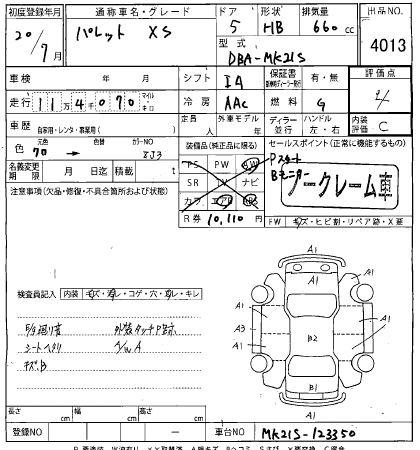 初度登録年月 通称車名・グレード ドア 形状 排気量 出品NO.
20年/7月 パレット XS 5 HB 660cc 4013
型式 DBA-MK21S
車検 年 月 シフト IA 保証書 有・無 評価点
走行 11万4千070 マイル キロ 冷房 AAC 燃料 G
車歴 自家用・レンタ・事業用( ) 定員 人 外車モデル 年 ディーラー 並行 ハンドル 左・右 内装評価 C
色 元色 70 → 色替 カラーNO ZJ3 装備品(純正品に限る) セールスポイント(正常に機能するもの)
名義変更期限 月 日迄 積載 t PS PW AW Pスタート
注意事項(欠品・修復・不具合箇所および状態) SR TV ナビ Bモニター
カワ エアB ノークレーム車
R券 10,110円 FW キズ・ヒビ割・リペア跡・X要
A1
A1 A1
検査員記入 内装 キズ・汚レ・コゲ・穴・切レ・キレ
A1 A1
A3 B2 A1
A1
シートヘタリ A/W A
キズ、B
A1 B1 A1
A1
長さ cm 幅 cm 高さ cm
登録NO ー 車台NO MK21S-123350